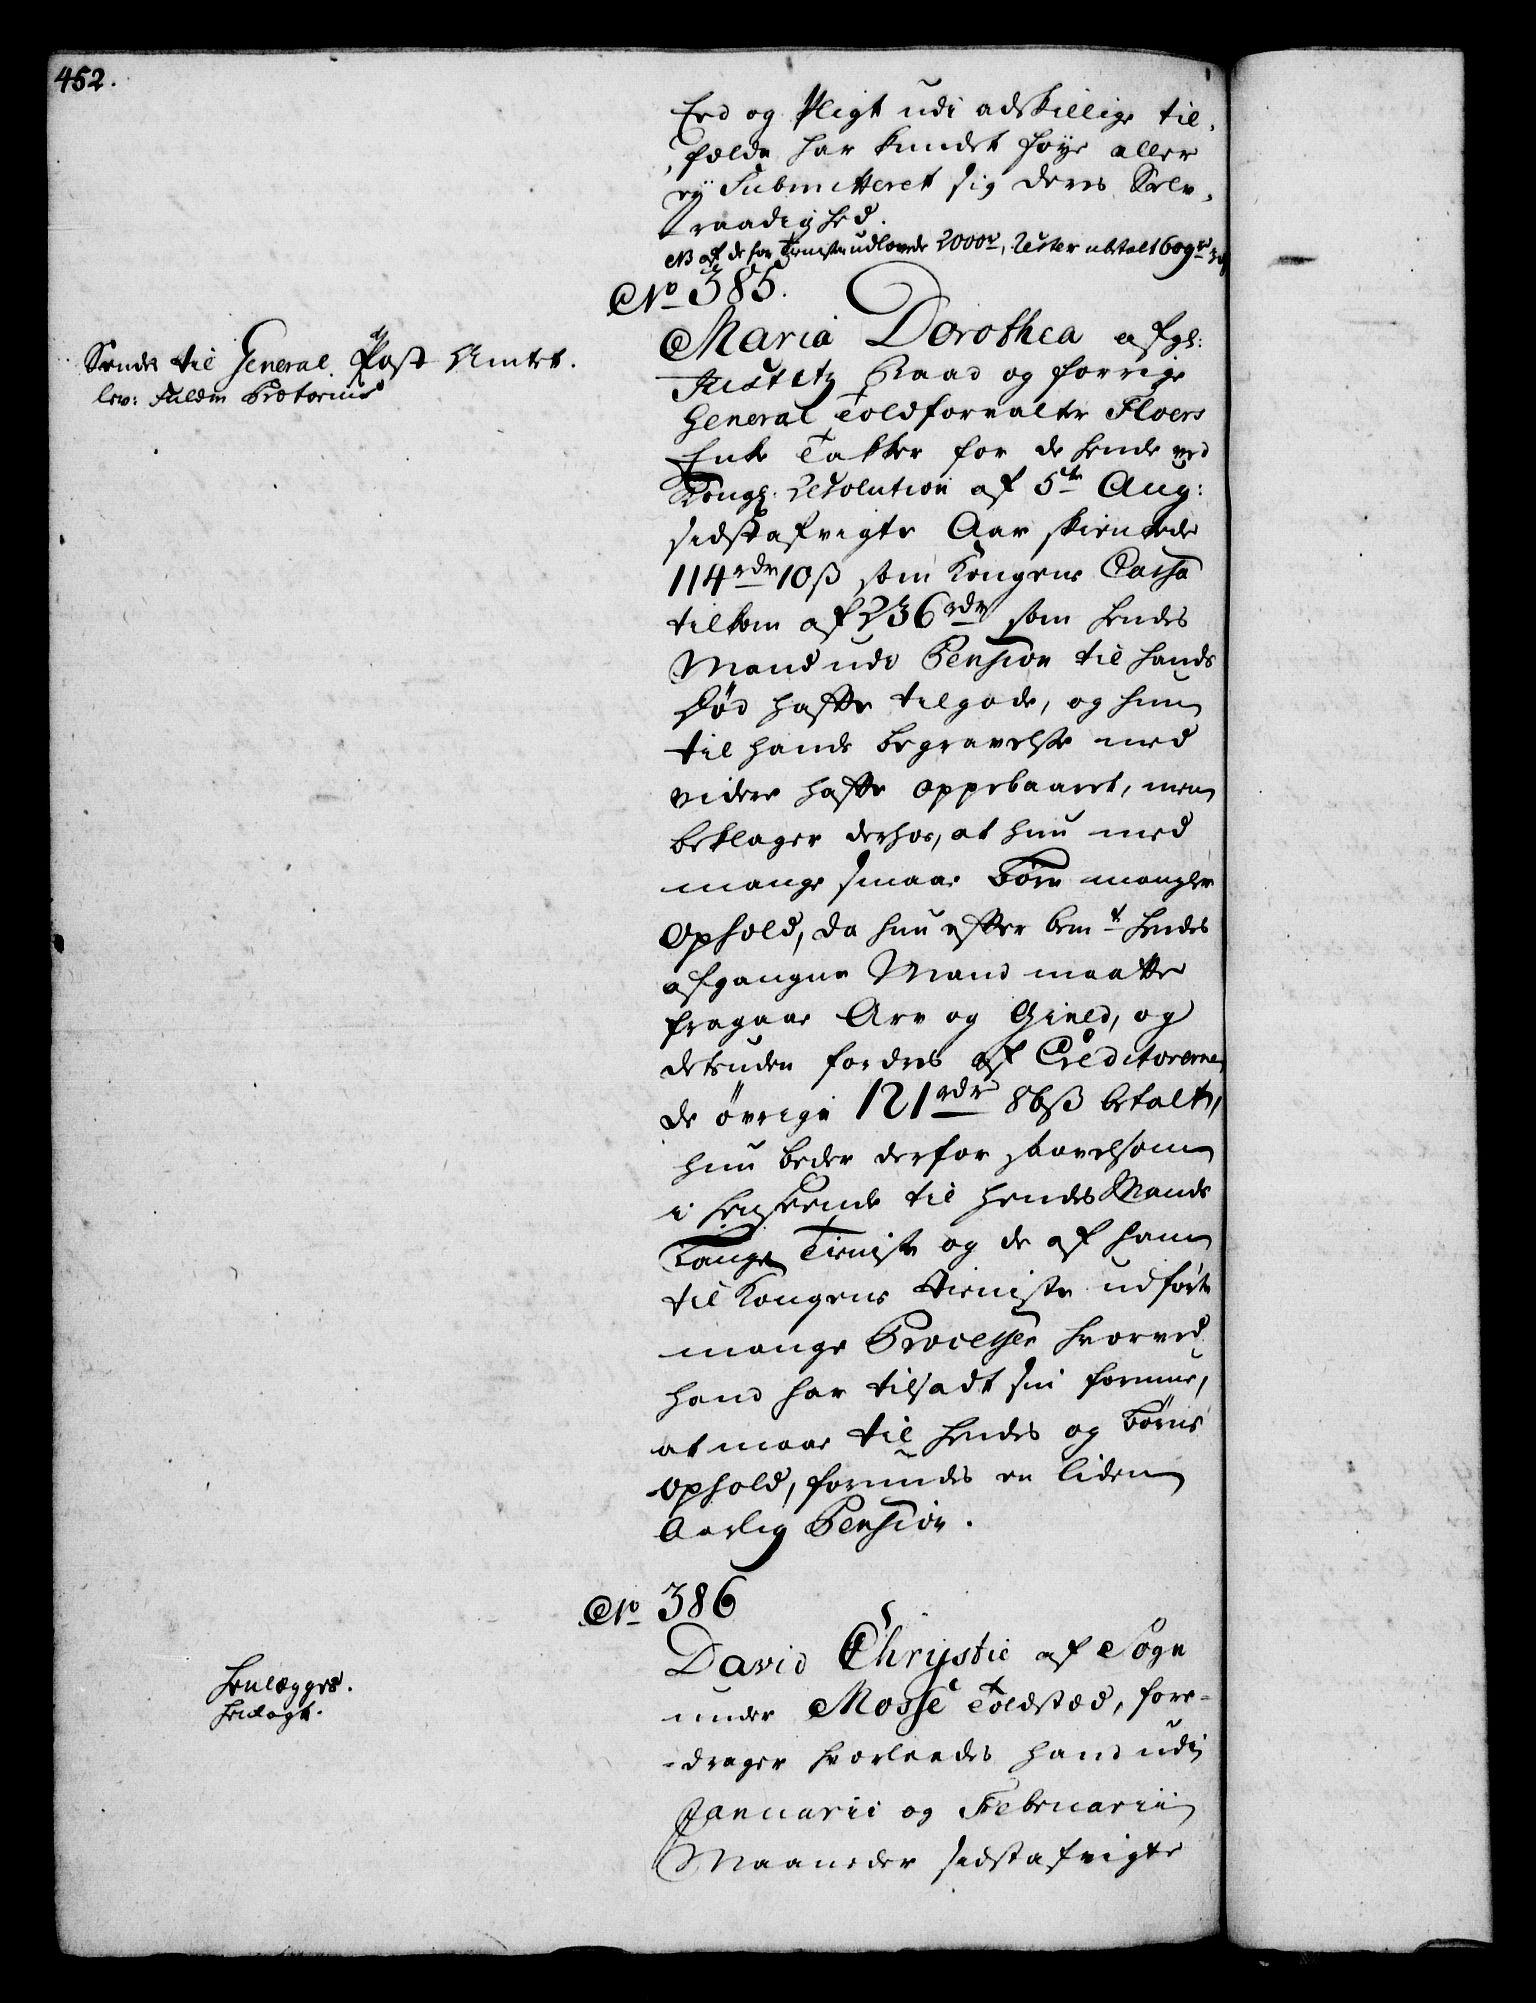 452.
Eed og Pligt udi adskillige til-
fælde har kundet føye eller
ey Submitteret sig deres Selv-
raadighed.
NB af de for udlovede 2000r, Rester ubetalt 609r
No 385.
Maria Dorothea afg:
Justitz Raad og forrige
General Toldforvalter Floers
Enke Takker for de hende ved
Kongl. Resolution af 5te Aug:
sidstafvigte Aar skienkede
114rdr 10ß som Kongens Cassa
tilkom af 236rdr som hendes
Mand udi Pension til hands
Død hafte tilgode, og hun
til hands begravelse med
videre hafte oppebaaret, men
beklager derhos, at hun med
mange smaae Børn mangler
Ophold, da hun efter bemt hendes
afgangne Mand maatte
fragaae Arv og Gield, og
desuden fordres af Creditorerne
de øvrige 121rdr 86ß betalt,
hun beder derfor saavelsom
i henseende til hendes Mands
lange Tieniste og de af ham
til Kongens tieniste udførte
mange Processer hvorved
hand har tilsadt sin formue,
at maae til hendes og Børns
ophold, forundes en liden
Aarlig Pension.
Sendes til General Post Amtet.
lev: Fuldm Prætorius
No 386
David Chrystie af Sogn
under Mosse Toldsted, fore-
-drager hvorledes hand udi
Januarii og Februarii
Maaneder sidstafvigte
Henlegges.
henlagt.